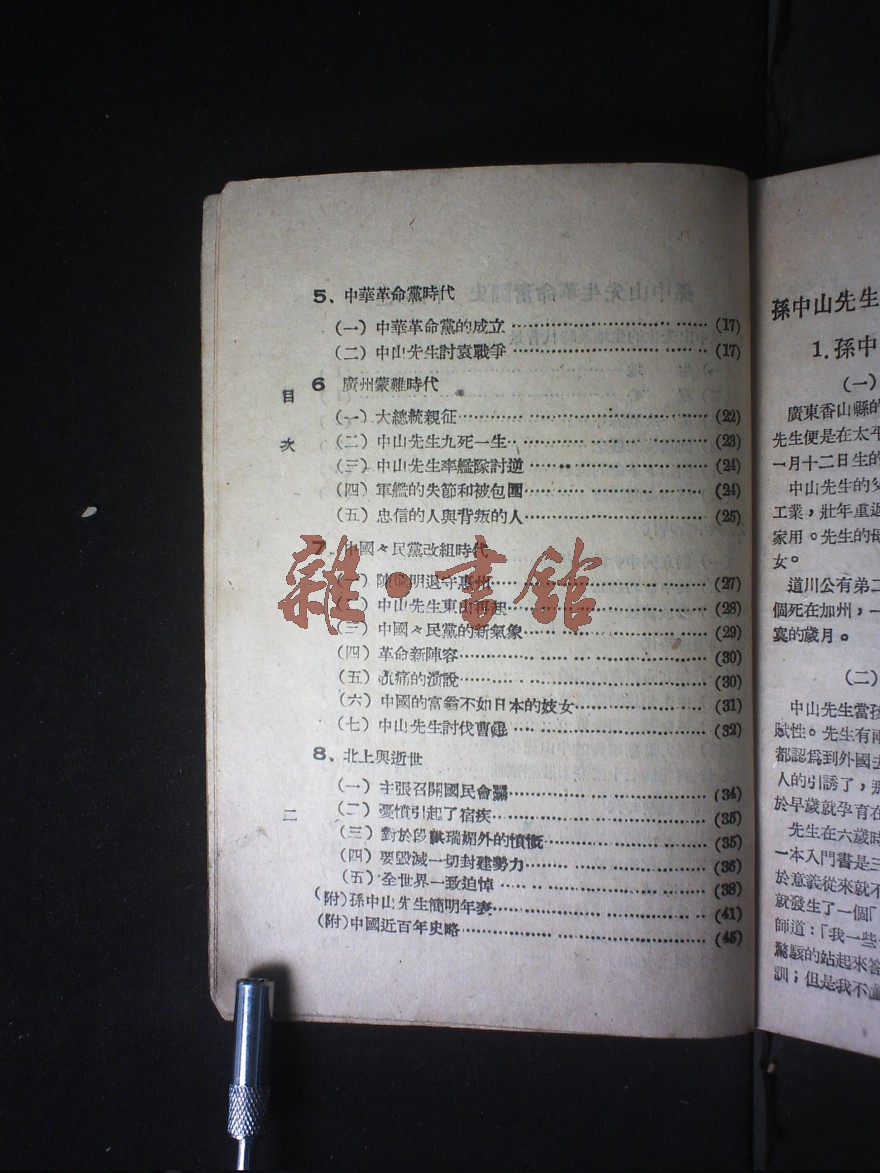 5、中華革命黨時代
(一) 中華革命黨的成立 (17)
(二) 中山先生討袁戰爭 (17)
6 廣州蒙難時代
(一) 大總統親征 (22)
(二) 中山先生九死一生 (23)
(三) 中山先生率艦隊討逆 (24)
(四) 軍艦的失節和被包圍 (24)
(五) 忠信的人與背叛的人 (25)
7、中國々民黨改組時代
(一) 陳烱明退守惠州 (27)
(二) 中山先生東山再起 (28)
(三) 中國々民黨的新氣象 (29)
(四) 革命新陣容 (30)
(五) 沉痛的演說 (30)
(六) 中國的富翁不如日本的妓女 (31)
(七) 中山先生討伐曹錕 (32)
8、北上與逝世
(一) 主張召開國民會議 (34)
(二) 憂憤引起了宿疾 (35)
(三) 對於段祺瑞媚外的憤慨 (35)
(四) 要毀滅一切封建勢力 (36)
(五) 全世界一致追悼 (38)
(附) 孫中山先生簡明年表 (41)
(附) 中國近百年史略 (45)
目次
二
雜·書館
孫中山先生
1.孫中
(一)
廣東香山縣的
先生便是在太平
一月十二日生的
中山先生的父
工業，壯年重返
家用。先生的母
女。
道川公有弟二
個死在加州，一
寞的歲月。
(二)
中山先生當孩
賦性。先生有兩
都認爲到外國去
人的引誘了，那
於早歲就孕育在
先生在六歲時
一本入門書是三
於意義從來就不
就發生了一個「
師道：「我一些
驚駭的站起來答
訓；但是我不讀